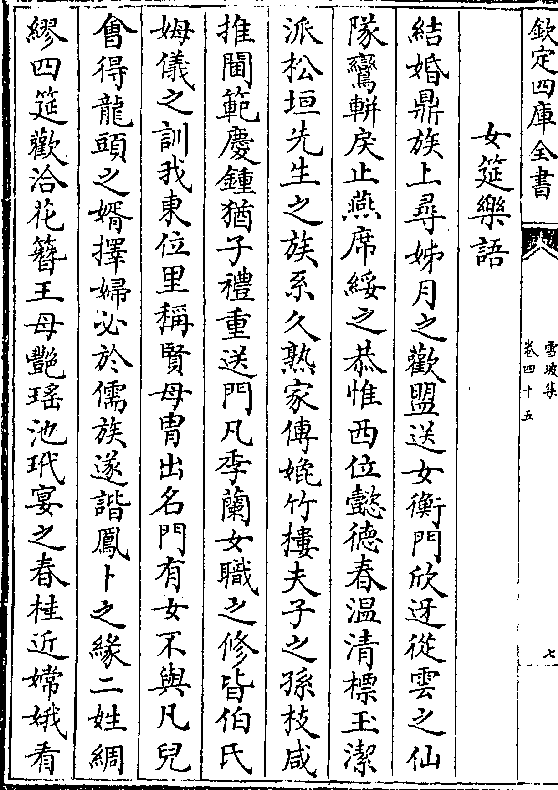 欽定四庫全書
雪坡集
卷四十五
七
女筵樂語
結婚鼎族上尋姊月之歡盟送女衡門欣迓從雲之仙
隊鸞軿戾止燕席綏之恭惟西位懿徳春温清標玉潔
派松垣先生之族系久熟家傳婉竹樓夫子之孫枝咸
推閫範慶鍾猶子禮重送門凡季蘭女職之修皆伯氏
姆儀之訓我東位里稱賢母胄出名門有女不與凡兒
㑹得龍頭之婿擇婦必於儒族遂諧鳳卜之緣二姓綢
繆四筵歡洽花簪王母艷瑶池玳宴之春桂近嫦娥看